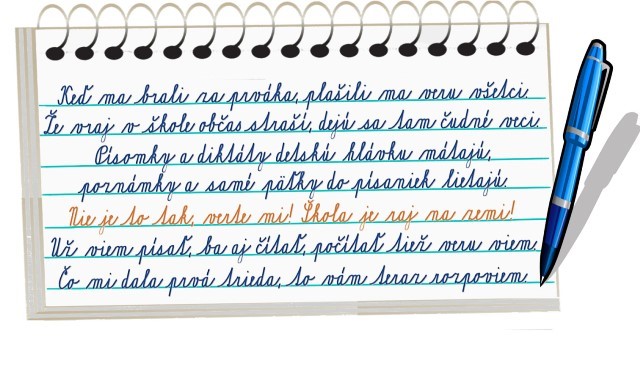 Keď ma brali za prváka, plašili ma veru všetci.
Že vraj v škole občas straší, dejú sa tam čudné veci.
Písomky a diktáty detskú hlávku mátajú,
poznámky a samé päťky do písaniek lietajú.
Nie je to tak, verte mi! Škola je raj na zemi!
Už viem písať, ba aj čítať, počítať tiež veru viem.
Čo mi dala prvá trieda, to vám teraz rozpoviem.